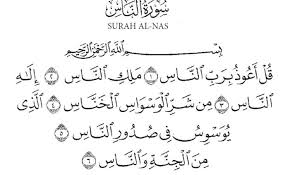 سُورَةُ النَّاسِ
SURAH AL-NAS
بِسْمِ اللَّهِ الرَّحْمَٰنِ الرَّحِيمِ
قُلْ أَعُوذُ بِرَبِّ النَّاسِ ١ مَلِكِ النَّاسِ ٢ إِلَٰهِ
النَّاسِ ٣ مِن شَرِّ الْوَسْوَاسِ الْخَنَّاسِ ٤ الَّذِي
يُوَسْوِسُ فِي صُدُورِ النَّاسِ ٥
مِنَ الْجِنَّةِ وَالنَّاسِ ٦